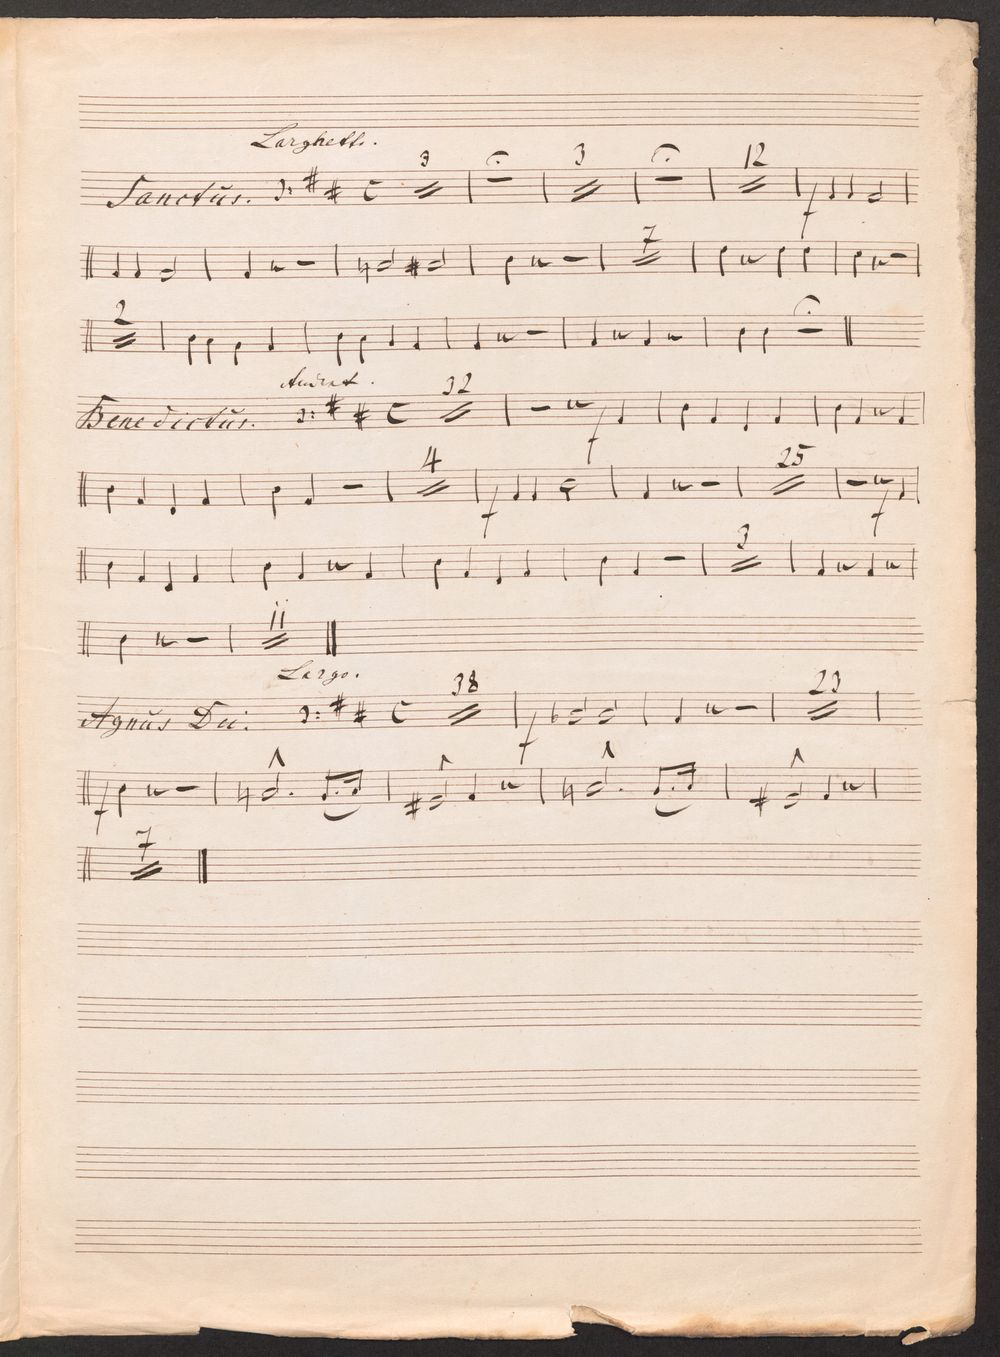 Larghetto.
Sanctus. 3 3 12
f
7
2
Andnt.
Benedictus. 32
f
4 25
f f
3
11
Largo.
Agnus Dei. 38 23
f
f
7